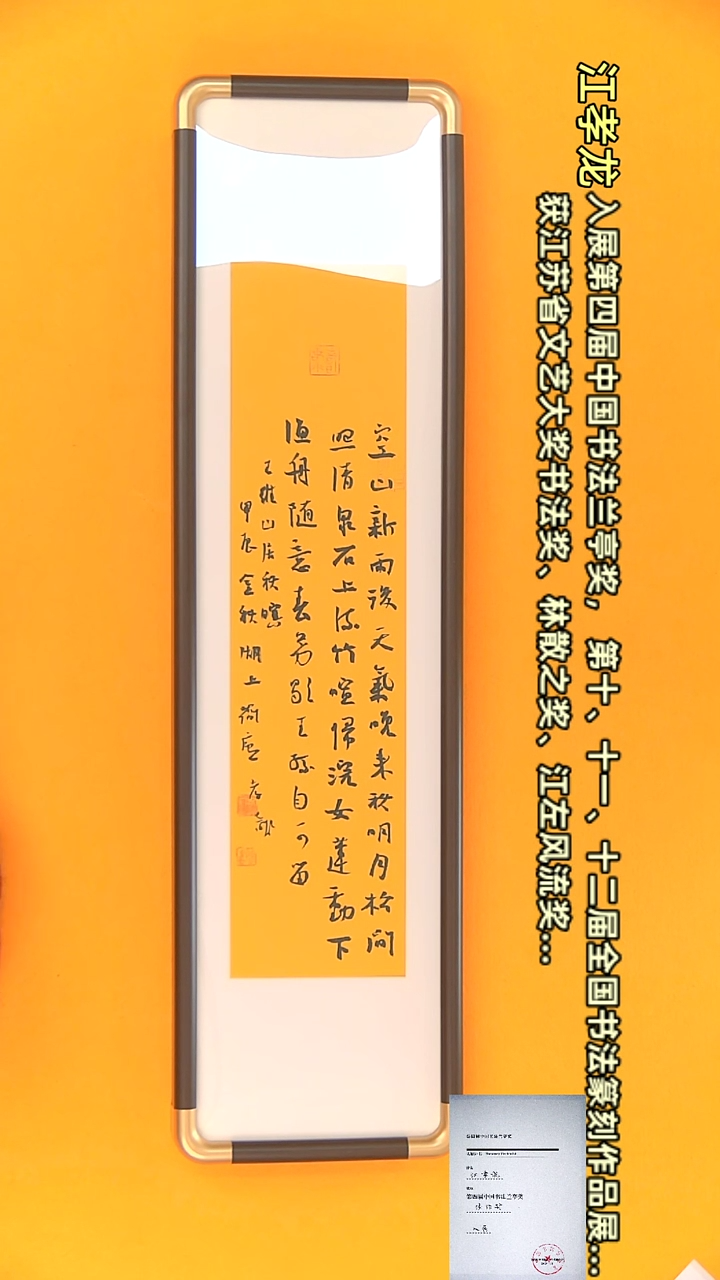 江孝龙 入展第四届中国书法兰亭奖，第十、十一、十二届全国书法篆刻作品展...
获江苏省文艺大奖书法奖、林散之奖、江左风流奖...
空山新雨後天氣晚来秋明月松間
照清泉石上流竹喧歸浣女蓮動下
漁舟随意春芳歇王孫自可留
王維山居秋暝
甲辰金秋湖上
孝龍
第四届中国书法兰亭奖
入展